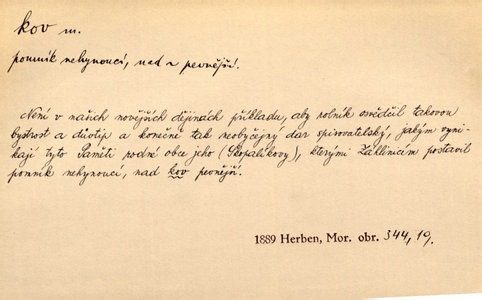 kov m.
pomník nehynoucí, nad ~ pevnější.
Není v našich novějších dějinách příkladu, aby rolník osvědčil takovou
bystrost a důvtip a konečně tak neobyčejný dar spisovatelský, jakým vyni-
kají tyto Paměti rodné obce jeho (Skopalíkovy), kterými Záhlinicím postavil
pomník nehynoucí, nad kov pevnější.
1889 Herben, Mor. obr. 344, 19.